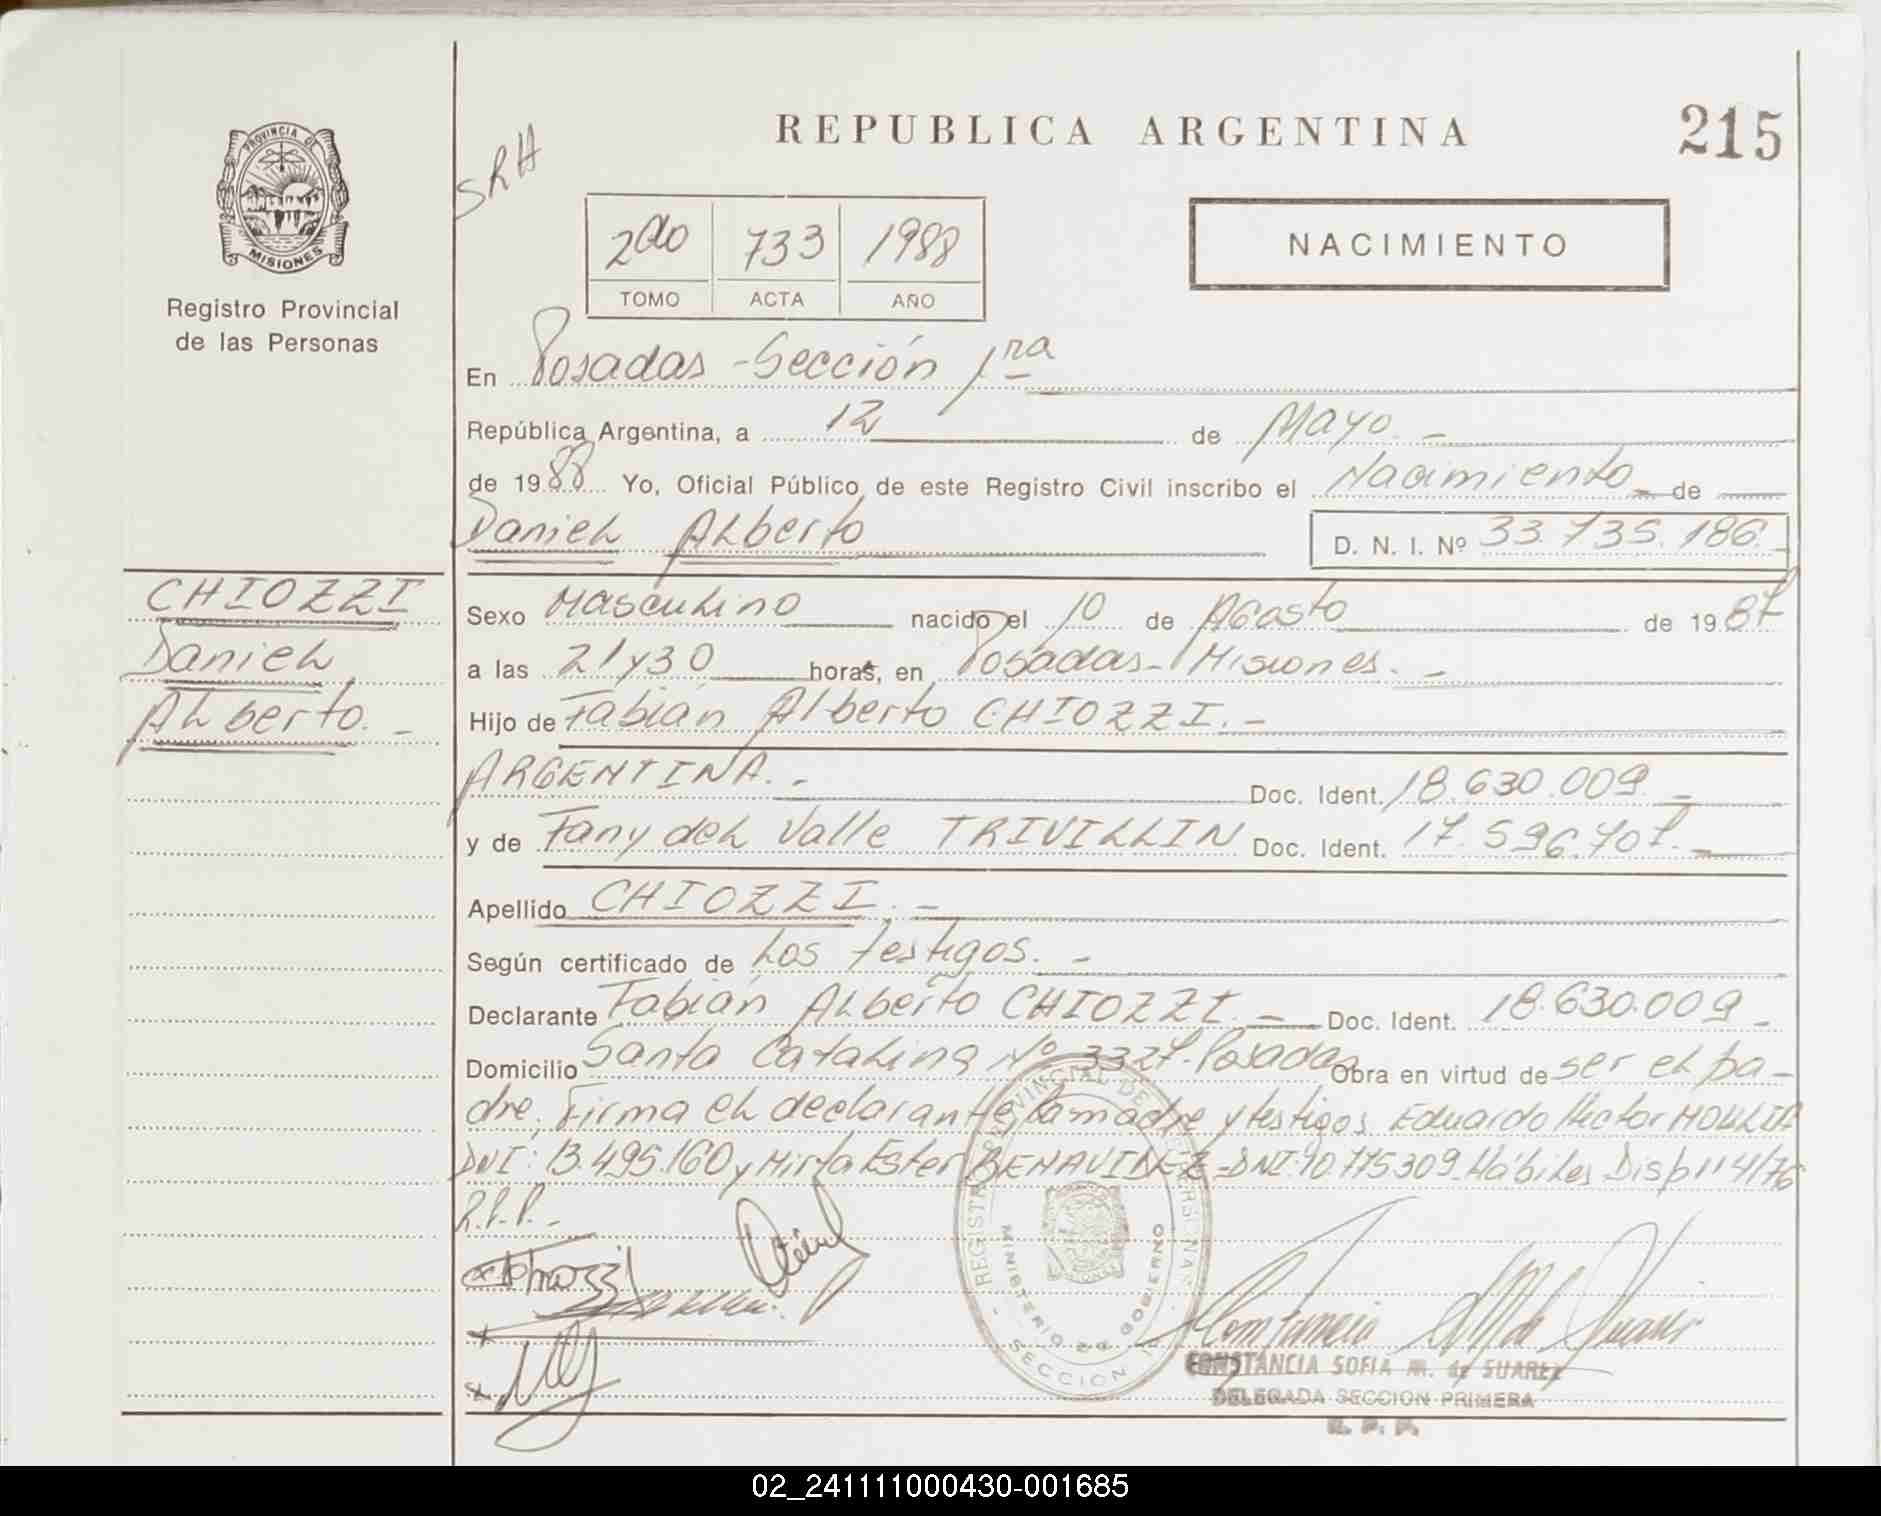 REPUBLICA ARGENTINA
215
SRH
PROVINCIA DE
MISIONES
Registro Provincial
de las Personas
2do 733 1988
TOMO ACTA AÑO
NACIMIENTO
En Posadas - Sección 1ra
República Argentina, a 12 de Mayo. -
de 1988 Yo, Oficial Público de este Registro Civil inscribo el Nacimiento de
Daniel Alberto D. N. I. Nº 33.735.186. -
CHIOZZI
Daniel
Alberto. -
Sexo Masculino nacido el 10 de Agosto de 1987
a las 21 y 30 horas, en Posadas - Misiones. -
Hijo de Fabián Alberto CHIOZZI. -
ARGENTINA. - Doc. Ident. 18.630.009. -
y de Fany del Valle TRIVILLIN Doc. Ident. 17.596.707. -
Apellido CHIOZZI. -
Según certificado de Los testigos. -
Declarante Fabián Alberto CHIOZZI. - Doc. Ident. 18.630.009 -
Domicilio Santa Catalina Nº 3327 - Posadas Obra en virtud de ser el pa-
dre; Firma el declarante, la madre y testigos Eduardo Hector
DNI: 13.495.160 y Mirta Ester BENAVIDEZ - DNI: 10.775309 - Hábiles Disp 114/76
R.P.P. -
REGISTRO PROVINCIAL DE LAS PERSONAS
MINISTERIO DE GOBIERNO
MISIONES
SECCION 1
CONSTANCIA SOFIA M. de SUAREZ
DELEGADA SECCION PRIMERA
R. P. P.
02_241111000430-001685